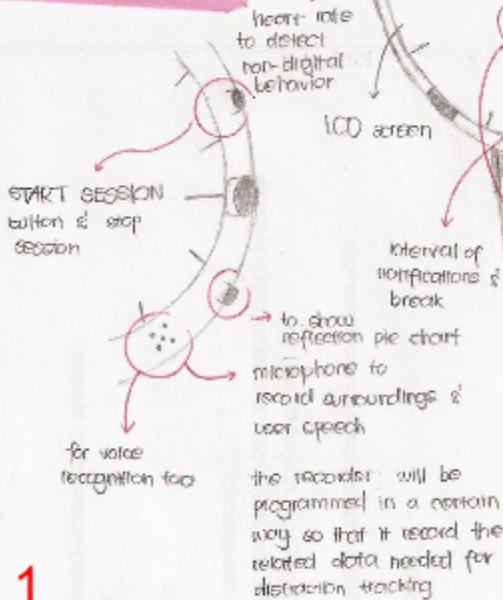 heart rate
to detect
non-digital
behavior
LCD screen
START SESSION
button & stop
session
interval of
notifications &
break
to show
reflection pie chart
microphone to
record surroundings &
user speech
for voice
recognition too
the recorder will be
programmed in a certain
way so that it record the
related data needed for
distraction tracking
1